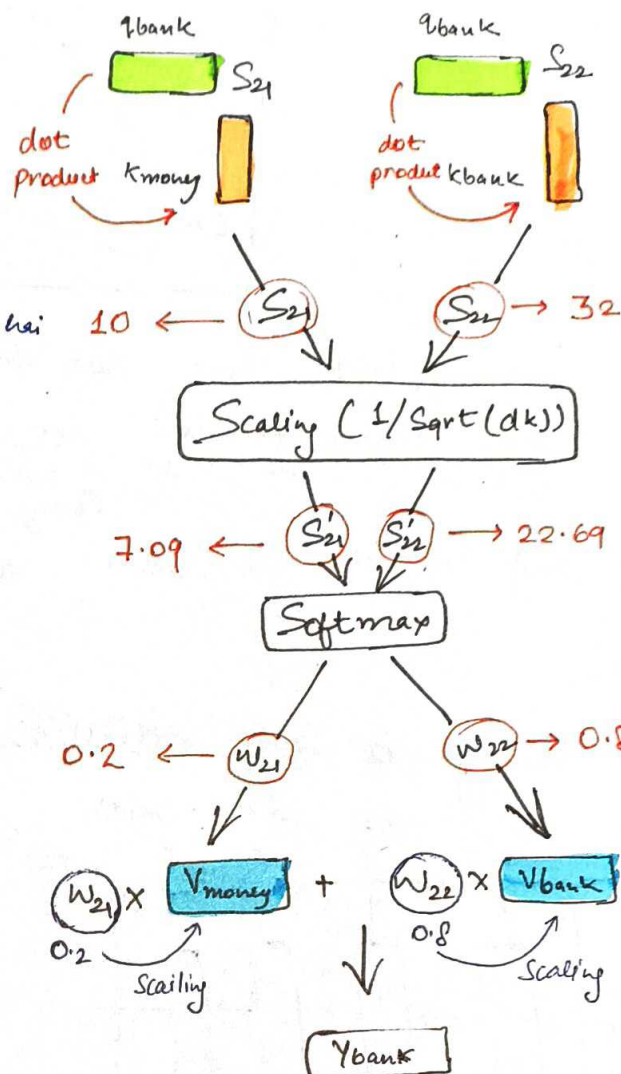 qbank qbank
S21 S22
dot product kmoney dot product kbank
hai 10 S21 S22 32
Scaling (1/Sqrt(dk))
7.09 S'21 S'22 22.69
Softmax
0.2 W21 W22 0.8
W21 x Vmoney + W22 x Vbank
0.2 Scailing 0.8 Scaling
Ybank